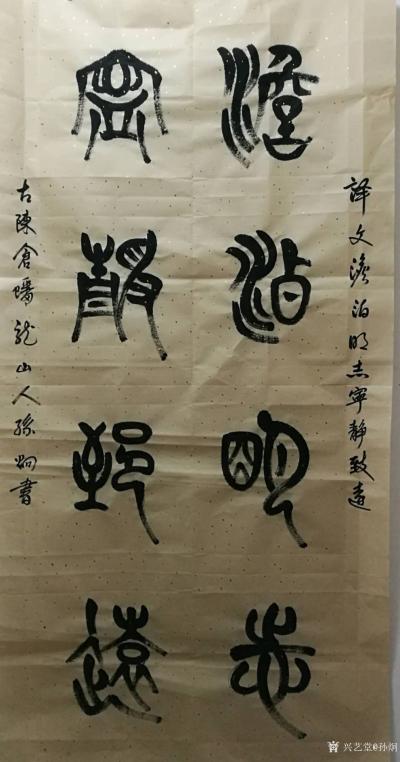 譯文澹泊明志寧靜致遠
澹泊明志
寧靜致遠
古陳倉蟠龍山人孫炯書
兴艺堂@孙炯